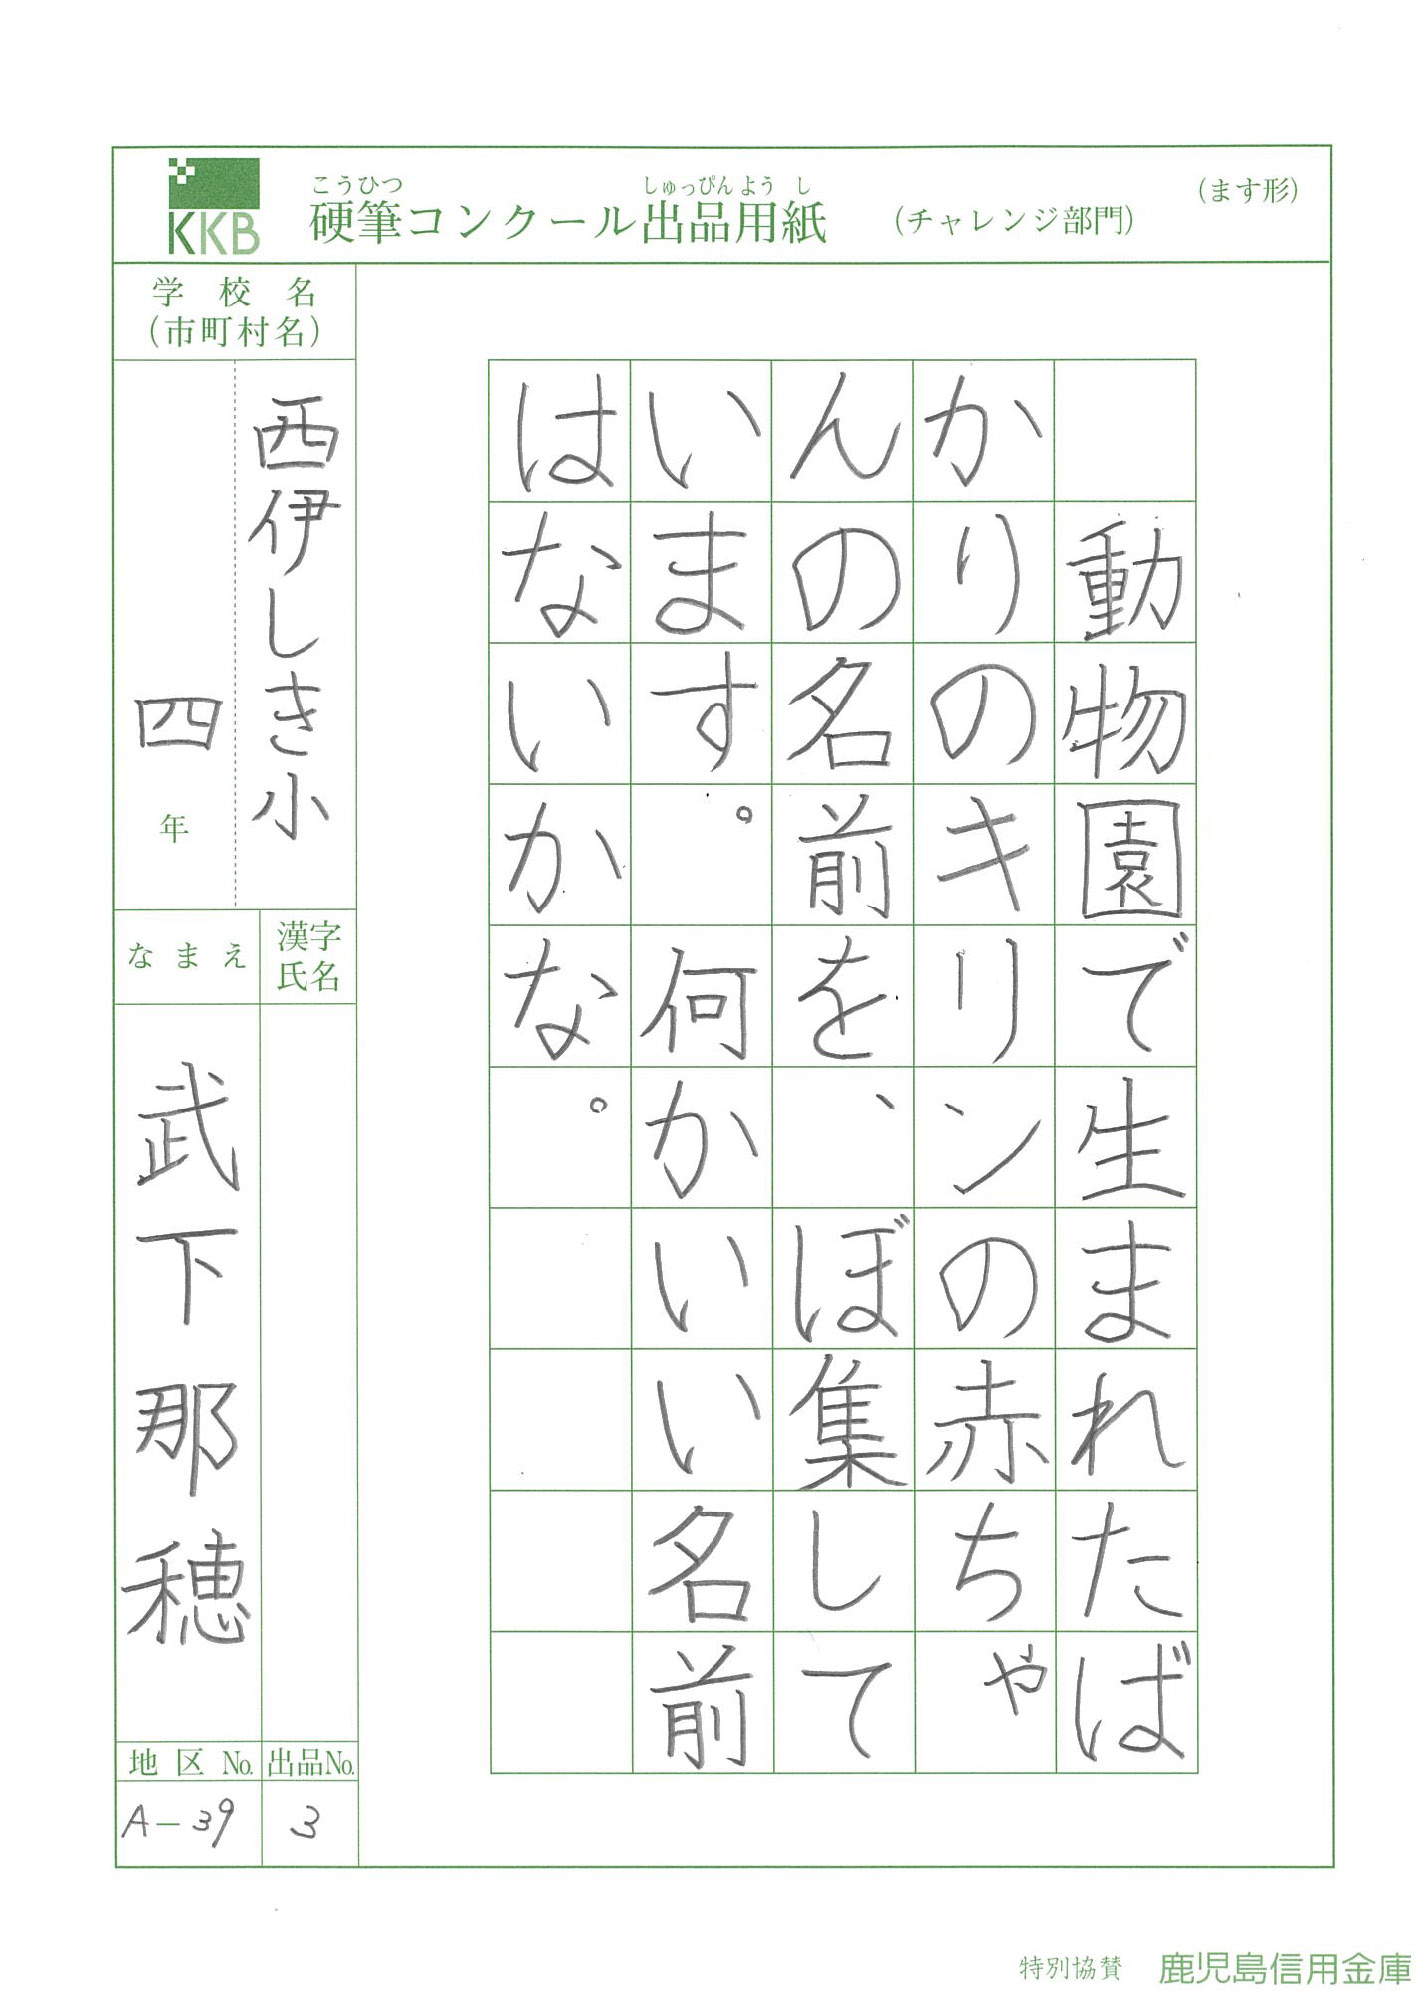 KKB
こうひつ しゅっぴんようし
硬筆コンクール出品用紙 (チャレンジ部門) (ます形)
動物園で生まれたば
かりのキリンの赤ちゃ
んの名前を、ぼ集して
います。何かいい名前
はないかな。
学校名
(市町村名)
西伊しき小
四年
漢字氏名
なまえ
武下那穂
地区No.
A-39
出品No.
3
特別協賛 鹿児島信用金庫